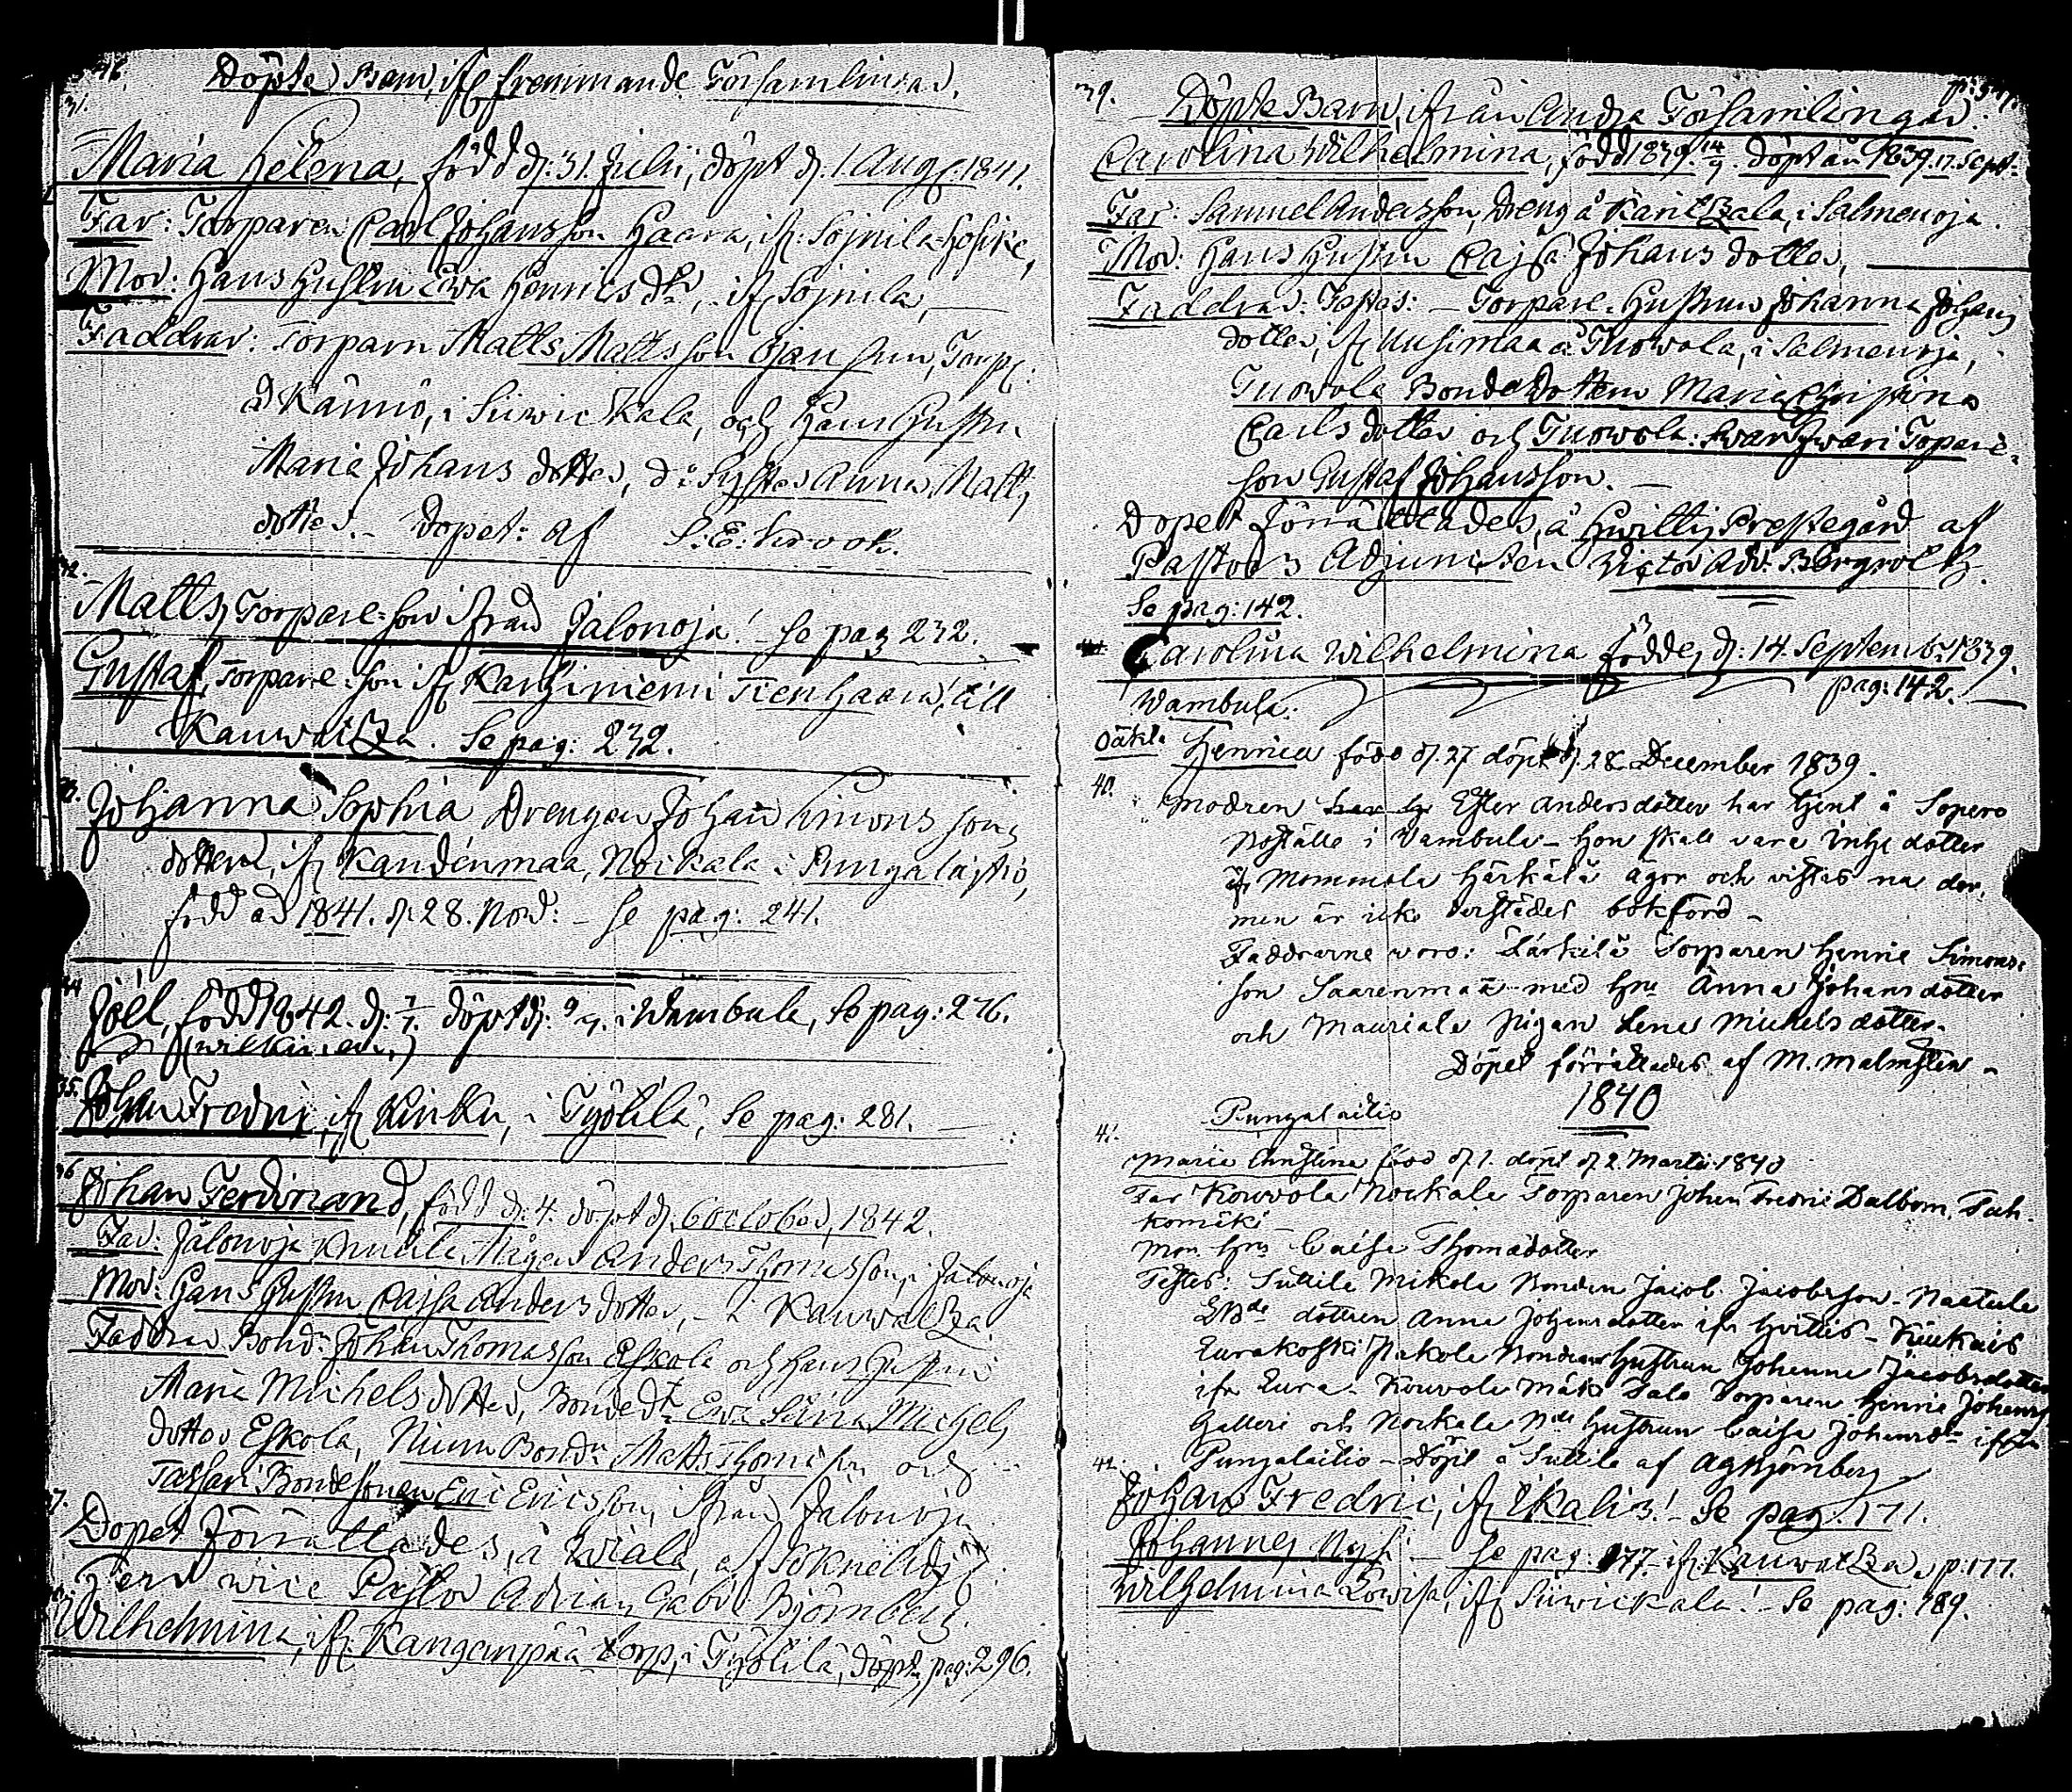 Döpte Barn, ifr fremmande Församlingar.
31.
Maria Helena, född d: 31. Julii, döpt d. 1. Aug: 1841.
Far: Torparen Carl Johansson Haara, ifr: Sojnila
Mor: Hans Hustru Ewa Henricsdr, ifr Sojnila,
Faddrar: Torparn Matts Mattsson Ojansuu, Torp:
å Kännö, i Siiwickala, och Hans Hustru
Maria Johans dotter, d:o Syster Anna Matts
dotter. - Dopet: af S: E: Krook.
32.
Matts, Torpare-son ifrån Jalonoja! - Se pag 232.
Gustaf, Torpare-son ifr Karhiniemi Tienhaara, till
Kauwatza. Se pag: 232.
33.
Johanna Sophia, Drengen Johan Simons sons
dotter, ifr Kandenmaa, Noikala i Pungalaitio,
född år 1841. d. 28. Nov: - Se pag: 241.
34
Joël, född 1842. d: 7/7. döpt d: 9/7. i Wambula, Se pag: 276.
35.
Johan Fredric, ifr Kinku, i Työtilä, Se pag: 281.
36
Johan Ferdinand, född d: 4. döpt d. 6 October, 1842.
Far: Jalonoja Knuutila Mågen Anders Thomasson, i Jalonoja
Mor: Hans Hustru Cajsa Anders dotter, - i Kauwatza.
Faddrar Bond: Johan Thomasson Eskola och Hans Hustru
Maria Michels dotter, Bondedr Ewa Stina Michels
dotter Eskola, Bondn Matts Thomasson och
Tassari Bondesonen Eric Ericsson, ifrån Jalonoja
37.
Dopet förrättades, å Wiala, af Sokne
wice Pastor Adrian Gabr: Björnberg.
Wilhelmina, ifr: Kanganpää torp, i Työtilä, döpt, pag: 296.
39. Döpte Barn, ifrån Andra Församlingar.
Carolina Wilhelmina, född 1839. 14/9. döpt år 1839. 17. Sept:
Far: Samuel Andersson, Dreng å Karitzala, i Salmenoja.
Mor: Hans Hustru Cajsa Johans dotter,
Faddrar: Testes: - Torpare-Hustrun Johanna Johans
dotter, ifr Uusimaa å Tuowola, i Salmenoja,
Tuowola Bonde Dottern Maria Christina
Carls dotter och Tuowola: Torpare-
son Gustaf Johansson.
Dopet förrättades, å Hwittis Prestegård af
Pastors Adjuncten Victor Adr: Bergroth.
Se pag: 142.
Carolina Wilhelmina föddes d: 14. Septemb: 1839.
pag: 142.
Wambula:
Oäkta Henrica född d. 27 döpt d. 28 December 1839.
40. Modren Ester Andersdotter har tjent å Sopero
Boställe i Vambula - hon skall vara Inhs dotter
ifr Mommola Härkälä ägor och vistas nu der,
men är icke derstädes bokförd -
Faddrarne voro: Härkälä Torparen Henric Simons-
son Saarenmaa med Hru Anna Johansdotter
och Mauriala Pigan Lena Michelsdotter.
Dopet förrättades af M. Malmsten -
1840
Pungalaitio
41.
Maria Christina född d. 1. döpt d. 2. Martii 1840
Far Kouvola Noukala Torparen Johan Fredric Dalbom, Tah-
komäki -
Mor Hru Caisa Thomasdotter
Testes: Suttila Mikola Bonden Jacob Jacobsson - Naatula
dottren Anna Johansdotter ifr Hvittis - Kiukais
Eurakoski Pakola Bonde Hustrun Johanna Jacobsdotter
ifr Eura - Kouvola Mäki Tala Torparen Henric Johansson
Galleri och Noukala Hustrun Caisa Johansdr ifrån
Pungalaitio - Döpt å Suttila af A G Björnberg
42.
Johan Fredric, ifr Ekalis! - Se pag. 171.
Johannes Nys: - Se pag: 177. ifr Kauwatza, p. 177.
Wilhelmina Lowisa, ifr Siiwickala! - Se pag: 189.